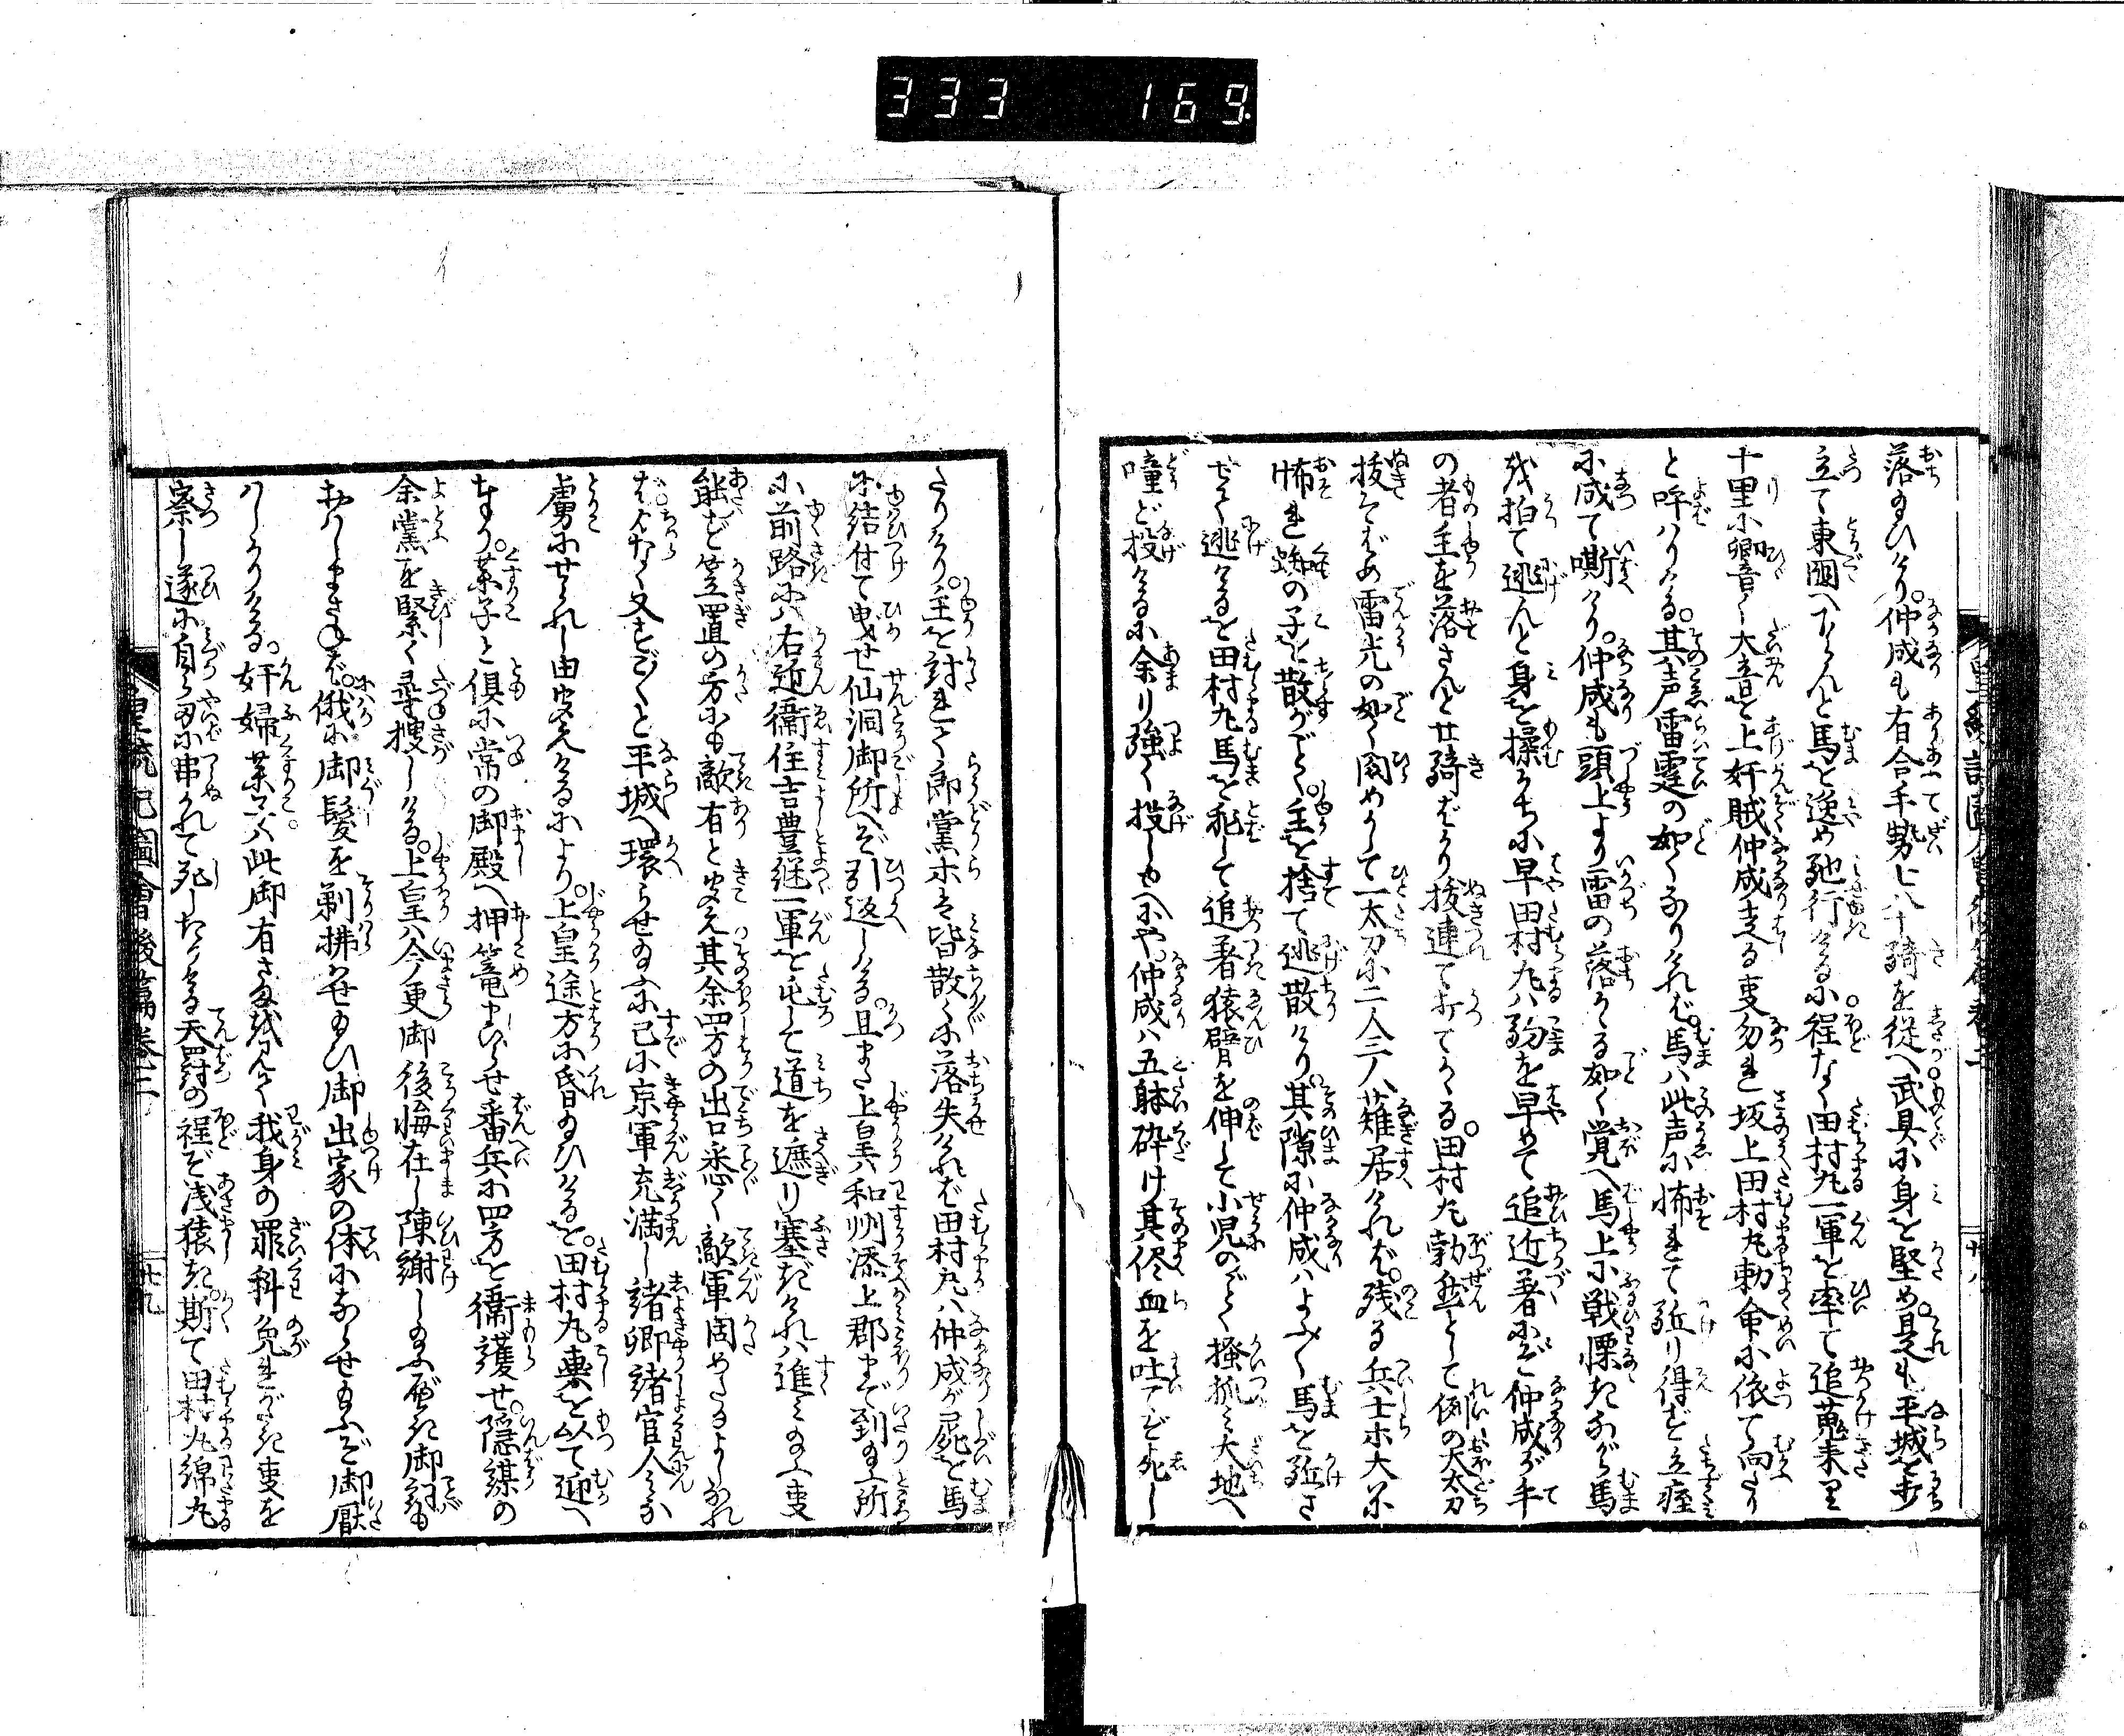 333 169.
落給ひけり。仲成も有合手勢七八十騎を従へ武具に身を堅め是も平城を歩
立て東国へ下らんと馬を逸め馳行ける小程なく田村丸一軍を率て追蒐来り
十里に響く大音を上奸賊仲成走る事勿れ坂上田村丸勅命に依て向たり
と呼はりける。其声雷霆の如くなりければ。馬ハ此声に怖れて跑り得ず立痓
に成て嘶けり。仲成も頭上より雷の落かゝる如く覚へ馬上に戦慄きながら馬
を拍て逃んと身を揉うちに早田村丸ハ駒を早めて追近着にぞ仲成が手
の者主を落さんと廿騎ばかり抜連て打てかゝる。田村丸勃然として例の大太刀
抜そばめ雷光の如く閃めかして一太刀に二人三人薙居ければ。残る兵士等大に
怖れ蜘の子を散がごとく。主を捨て逃散けり。其隙に仲成ハよふ〳〵馬を跑さ
せて逃けるを田村丸馬を飛して追着猿臂を伸して小児のごとく掻抓ミ大地へ
噇ど投けるに余り強く投しもへにや。仲成ハ五躰砕け其侭血を吐てぞ死し
たりけり。主を討れて郎党等も皆散々に落失ければ田村丸ハ仲成が屍を馬
に結付て曳せ仙洞御所へぞ引返しける。且また上皇ハ和州添上郡まで到給ふ所
に前路にハ右近衛住吉豊継一軍を屯して道を遮り塞ぎけれハ進ミ給ふ事
能ず笠置の方にも敵有と聞え其余四方の出口悉く敵軍固めたるよしなれ
ば。力なく又すご〳〵と平城へ環らせ給ふに已に京軍充満し諸卿諸官人ミな
虜にせられし由聞えけるにより。上皇途方に昏給ひけるを。田村丸輿を以て迎へ
奉り。薬子と倶に常の御殿へ押篭まいらせ番兵に四方を衛護せ。隠謀の
余党を緊く尋捜しける。上皇ハ今更御後悔在し陳謝し給ふべき御詞も
おハしまさねば。俄に御髪を剃捨させ給ひ御出家の体にならせ給ふぞ御厭
ハしかりける。奸婦薬子ハ此御有さまを見て我身の罪科免れがたき事を
察し遂に自ら刃に串かれて死したりける天罸の程ぞ浅猿き。斯て田村丸綿丸
皇統記図会後篇巻三
廿九